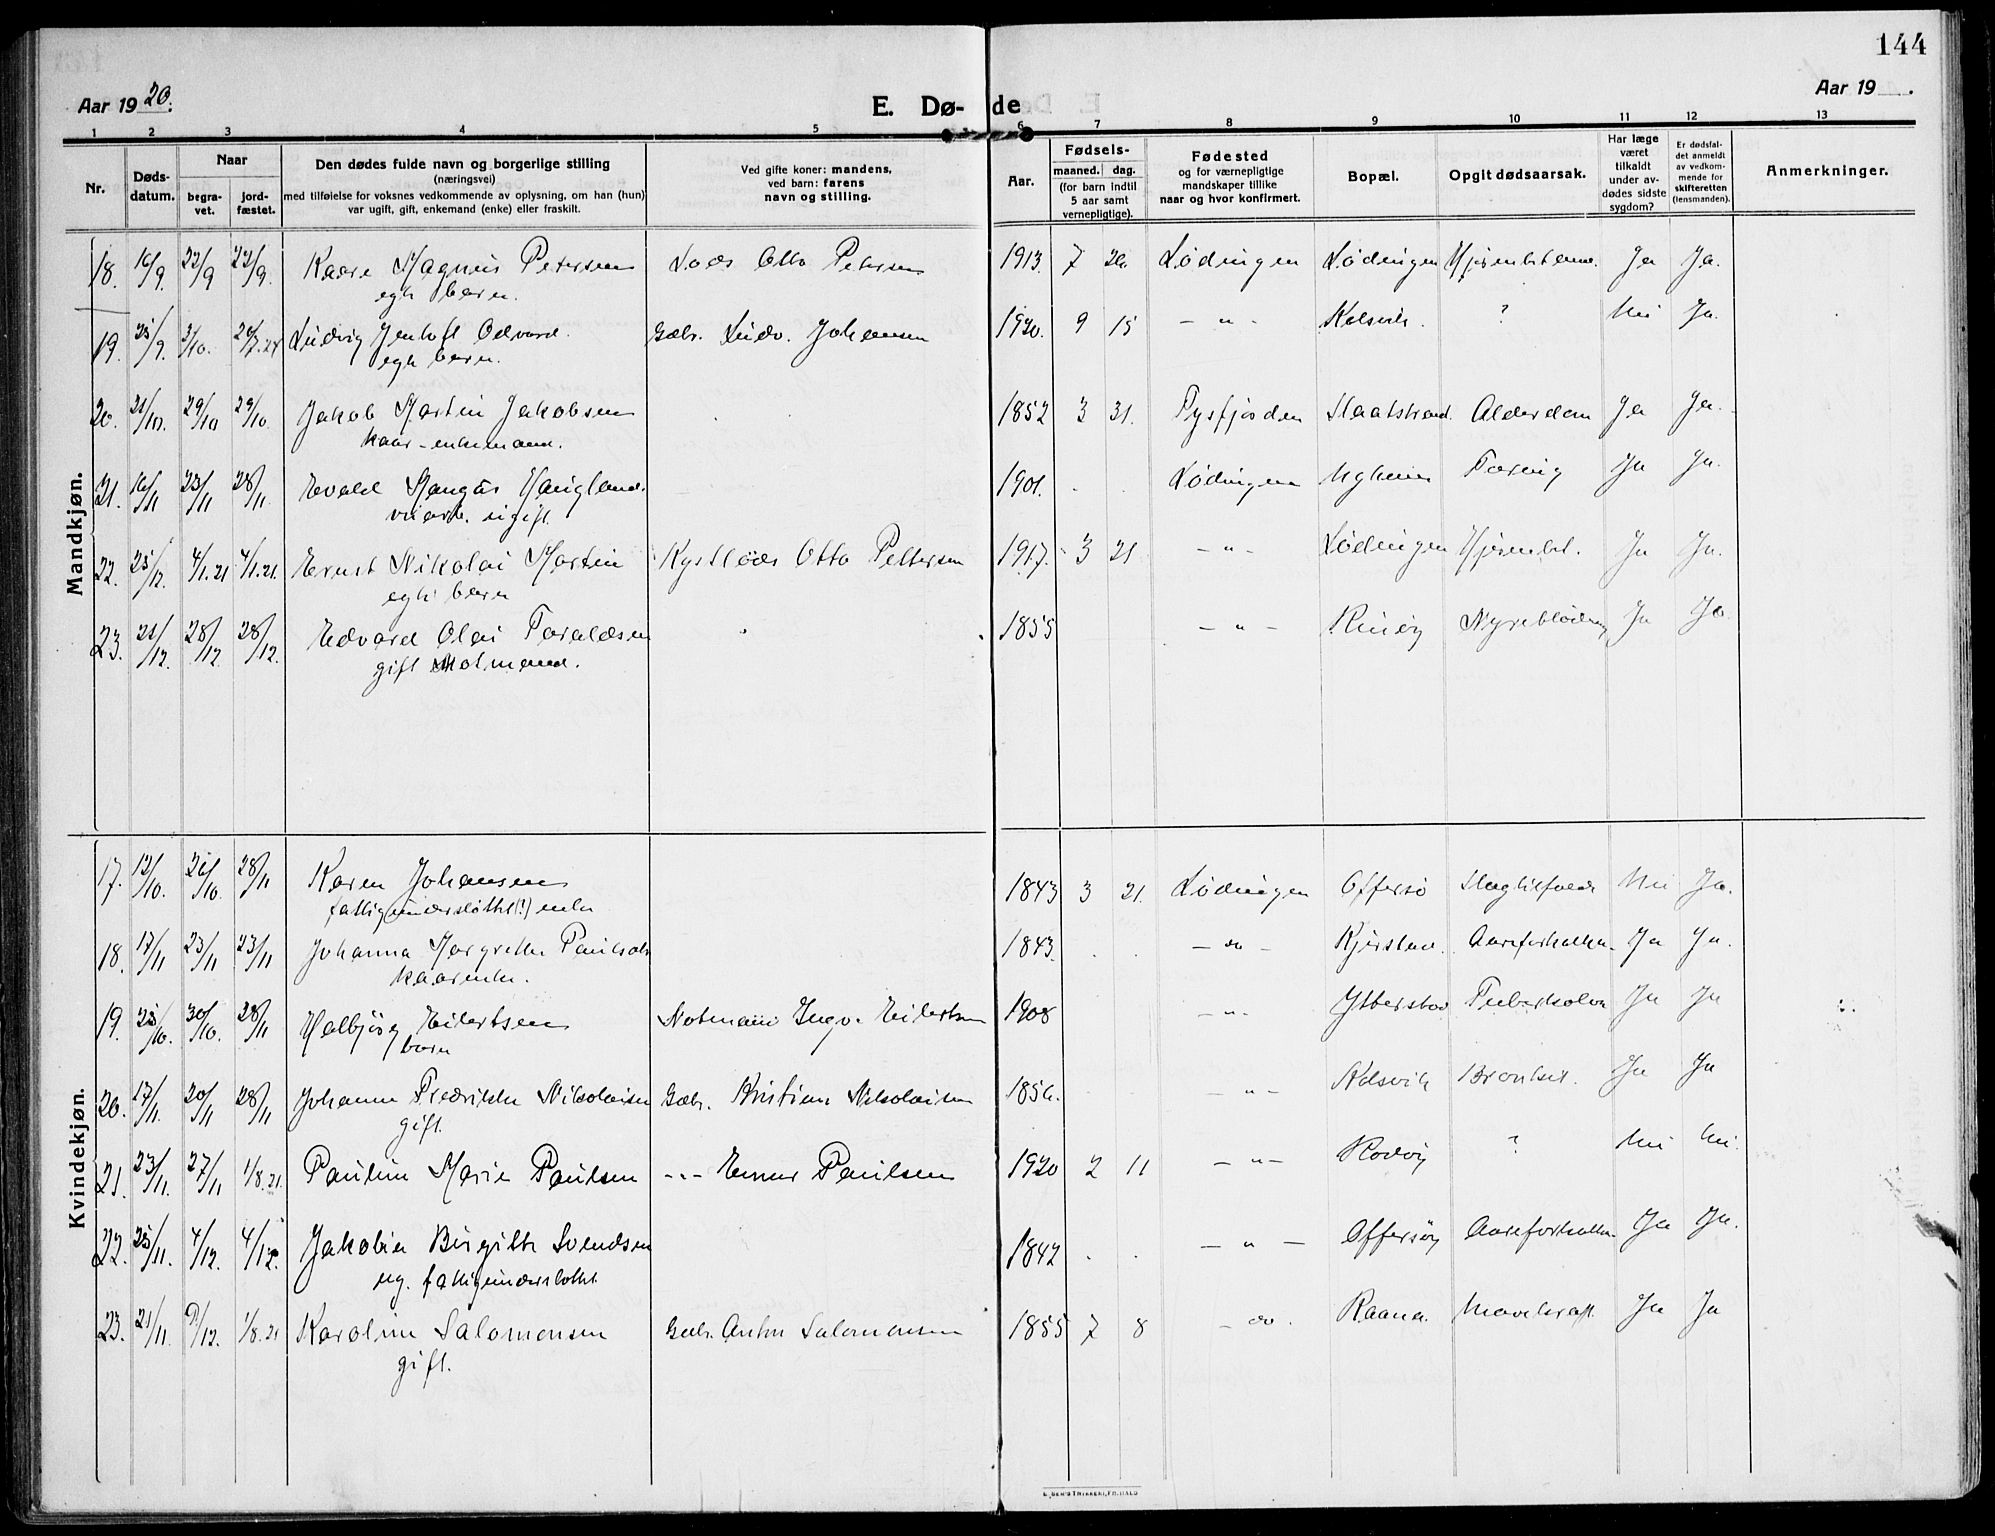 144
Aar 1920.
E. Dø- de
Aar 19 .
1 2 3 4 5 6 7 8 9 10 11 12 13
Nr.
Døds-
datum.
Naar
begra-
vet.
jord-
fæstet.
Den dødes fulde navn og borgerlige stilling
(næringsvei)
med tilføielse for voksnes vedkommende av oplysning, om han (hun)
var ugift, gift, enkemand (enke) eller fraskilt.
Ved gifte koner: mandens,
ved barn: farens
navn og stilling.
Aar.
Fødsels-
maaned. dag.
(for barn indtil
5 aar samt
vernepligtige).
Fødested
og for værnepligtige
mandskaper tillike
naar og hvor konfirmert.
Bopæl.
Opgit dødsaarsak.
Har læge
været
tilkaldt
under av-
dødes sidste
sygdom?
Er dødsfal-
det anmeldt
av vedkom-
mende for
skifteretten
(lensmanden).
Anmerkninger.
Mandkjøn.
18. 16/9. 22/9 22/9. Kaare Magnus Petersen Lods Otto Petersen 1913. 7 Lødingen Lødingen Ja Ja.
egte barn.
19. 25/9. 3/10. Ludvig Jentoft Edvard Gaabr. Ludv. Johansen 1920. 9 15 - " - Kolsvik. ? Nei Ja.
egte barn.
20. 21/10. 29/10 29/10. Jakob Martin Jakobsen 1852 3 31. Tysfjorden Staalstrand. Alderdom Ja Ja.
kaar-enkemand.
21. 16/11 23/11 28/11. Evald Haugland. 1901. Lødingen Tæring Ja Ja.
ugift.
22. 25/12. 4/1.21 4/1.21. Ernst Nikolai Martin Kystlods Otto Pettersen 1917. 3 21 - " - Lødingen Ja Ja.
egte barn
23. 21/12. 28/12 28/12. Edvard Olai Taraldsen 1855 - " - Rinøy Nyreblødning Ja Ja
gift Notmand.
Kvindekjøn.
17. 12/10. 28/11 Karen Johansen 1843 3 21. Lødingen Offersø Slagtilfælde Nei Ja.
fattigunderstøttet(!) enke
18. 17/11 23/11 23/11 Johanna Margrethe Paulsdtr 1843. - do - Aareforkalkn. Ja Ja.
kaarenke.
19. 25/10. 30/10. 28/11 Helbjørg Eilertsen Notmand Ingv. Eilertsen 1908 - " - Ytterstad Tuberkolose Ja Ja
barn
20. 17/11. 20/11 28/11 Johanna Fredrikke Nikolaisen Gaabr. Kristian Nikolaisen 1856. - " - Kolsvik Ja Ja
gift.
21. 23/11. 27/11 1/8.21. Pauline Marie Paulsen - - - Paulsen 1920 2 11 - " - Rodøy ? Nei Nei
22. 25/11. 4/12. 4/12. Jakobine Birgitte Svendsen 1842 - " - Offersøy Aareforkalkn. Ja Ja.
ug. fattigunderstøttet
23. 21/11. 9/12. 1/8.21 Karoline Salomonsen Gaabr. Anton Salomonsen 1855 7 8 - do. Raana. Mavekræft. Ja Ja
gift.